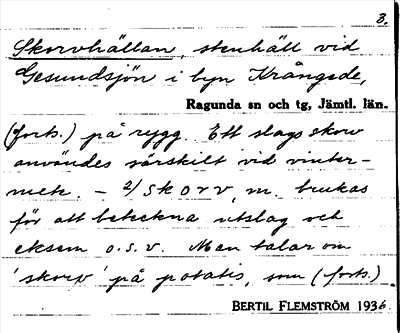 3.
Skorvhällan, stenhäll vid
Gesundsjön i byn Krångede,
Ragunda sn och tg, Jämtl. län.
(forts.) på rygg. Ett slags skorv
användes särskilt vid vinter-
mete. – 2/ skorv, m. brukas
för att beteckna utslag och
eksem o.s.v. Man talar om
'skorv' på potatis, som (forts.)
BERTIL FLEMSTRÖM 1936.